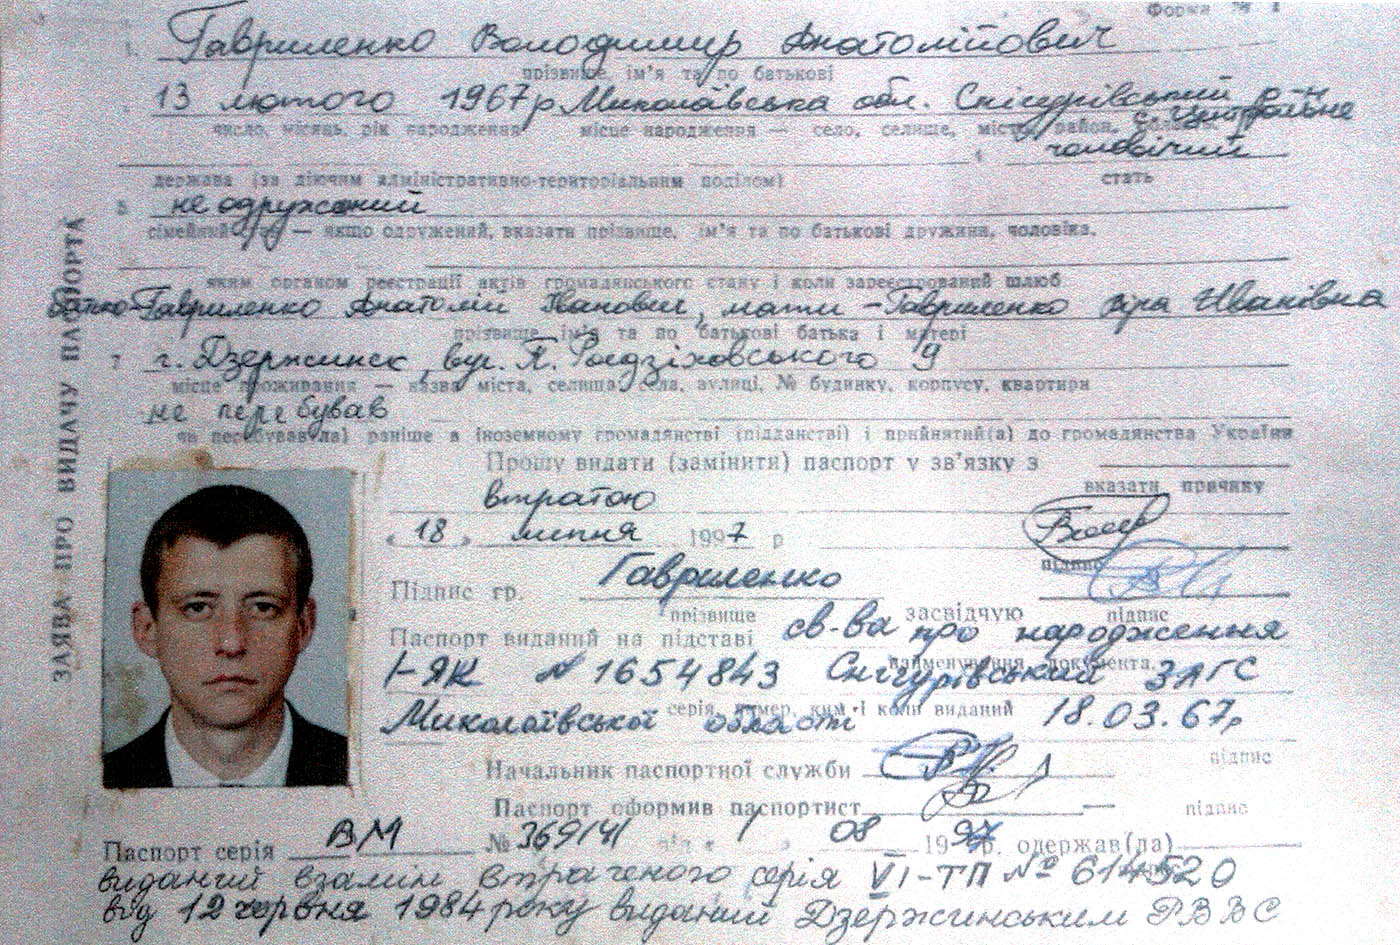 Форма № 1
1. Гавриленко Володимир Анатолійович
прізвище, ім'я та по батькові
13 лютого 1967 р Миколаївська обл. Снігурівський р-н
с. Центральне
число, місяць, рік народження місце народження — село, селище, місто, район, область
чоловічий
держава (за діючим адміністративно-територіальним поділом) стать
неодружений
сімейний стан — якщо одружений, вказати прізвище, ім'я та по батькові дружини, чоловіка,
яким органом реєстрації актів громадянського стану і коли зареєстрований шлюб
батько-Гавриленко Анатолій Іванович, мати-Гавриленко Віра Иванівна
прізвище, ім'я та по батькові батька і матері
7. г. Дзержинск, вул. П. 9
місце проживання — назва міста, селища, села, вулиці, № будинку, корпусу, квартири
не перебував
чи перебував(ла) раніше в іноземному громадянстві (підданстві) і прийнятий(а) до громадянства України
Прошу видати (замінити) паспорт у зв'язку з
вказати причину
втратою
« 18 » липня 1997 р
підпис
Підпис гр. Гавриленко засвідчую
прізвище підпис
Паспорт виданий на підставі св-ва про народження
найменування документа,
І-ЯК № 1654843 Снігурівський ЗАГС
серія, номер, ким і коли виданий
Миколаївської області 18.03.67р
Начальник паспортної служби підпис
Паспорт оформив паспортист підпис
Паспорт серія ВМ № 369141 від « 1 » 08 1997р. одержав(ла)
виданий взамін втраченого серія VI-ТП № 614520
від 12 червня 1984 року виданий Дзержинським РВВС
ЗАЯВА ПРО ВИДАЧУ ПАСПОРТА